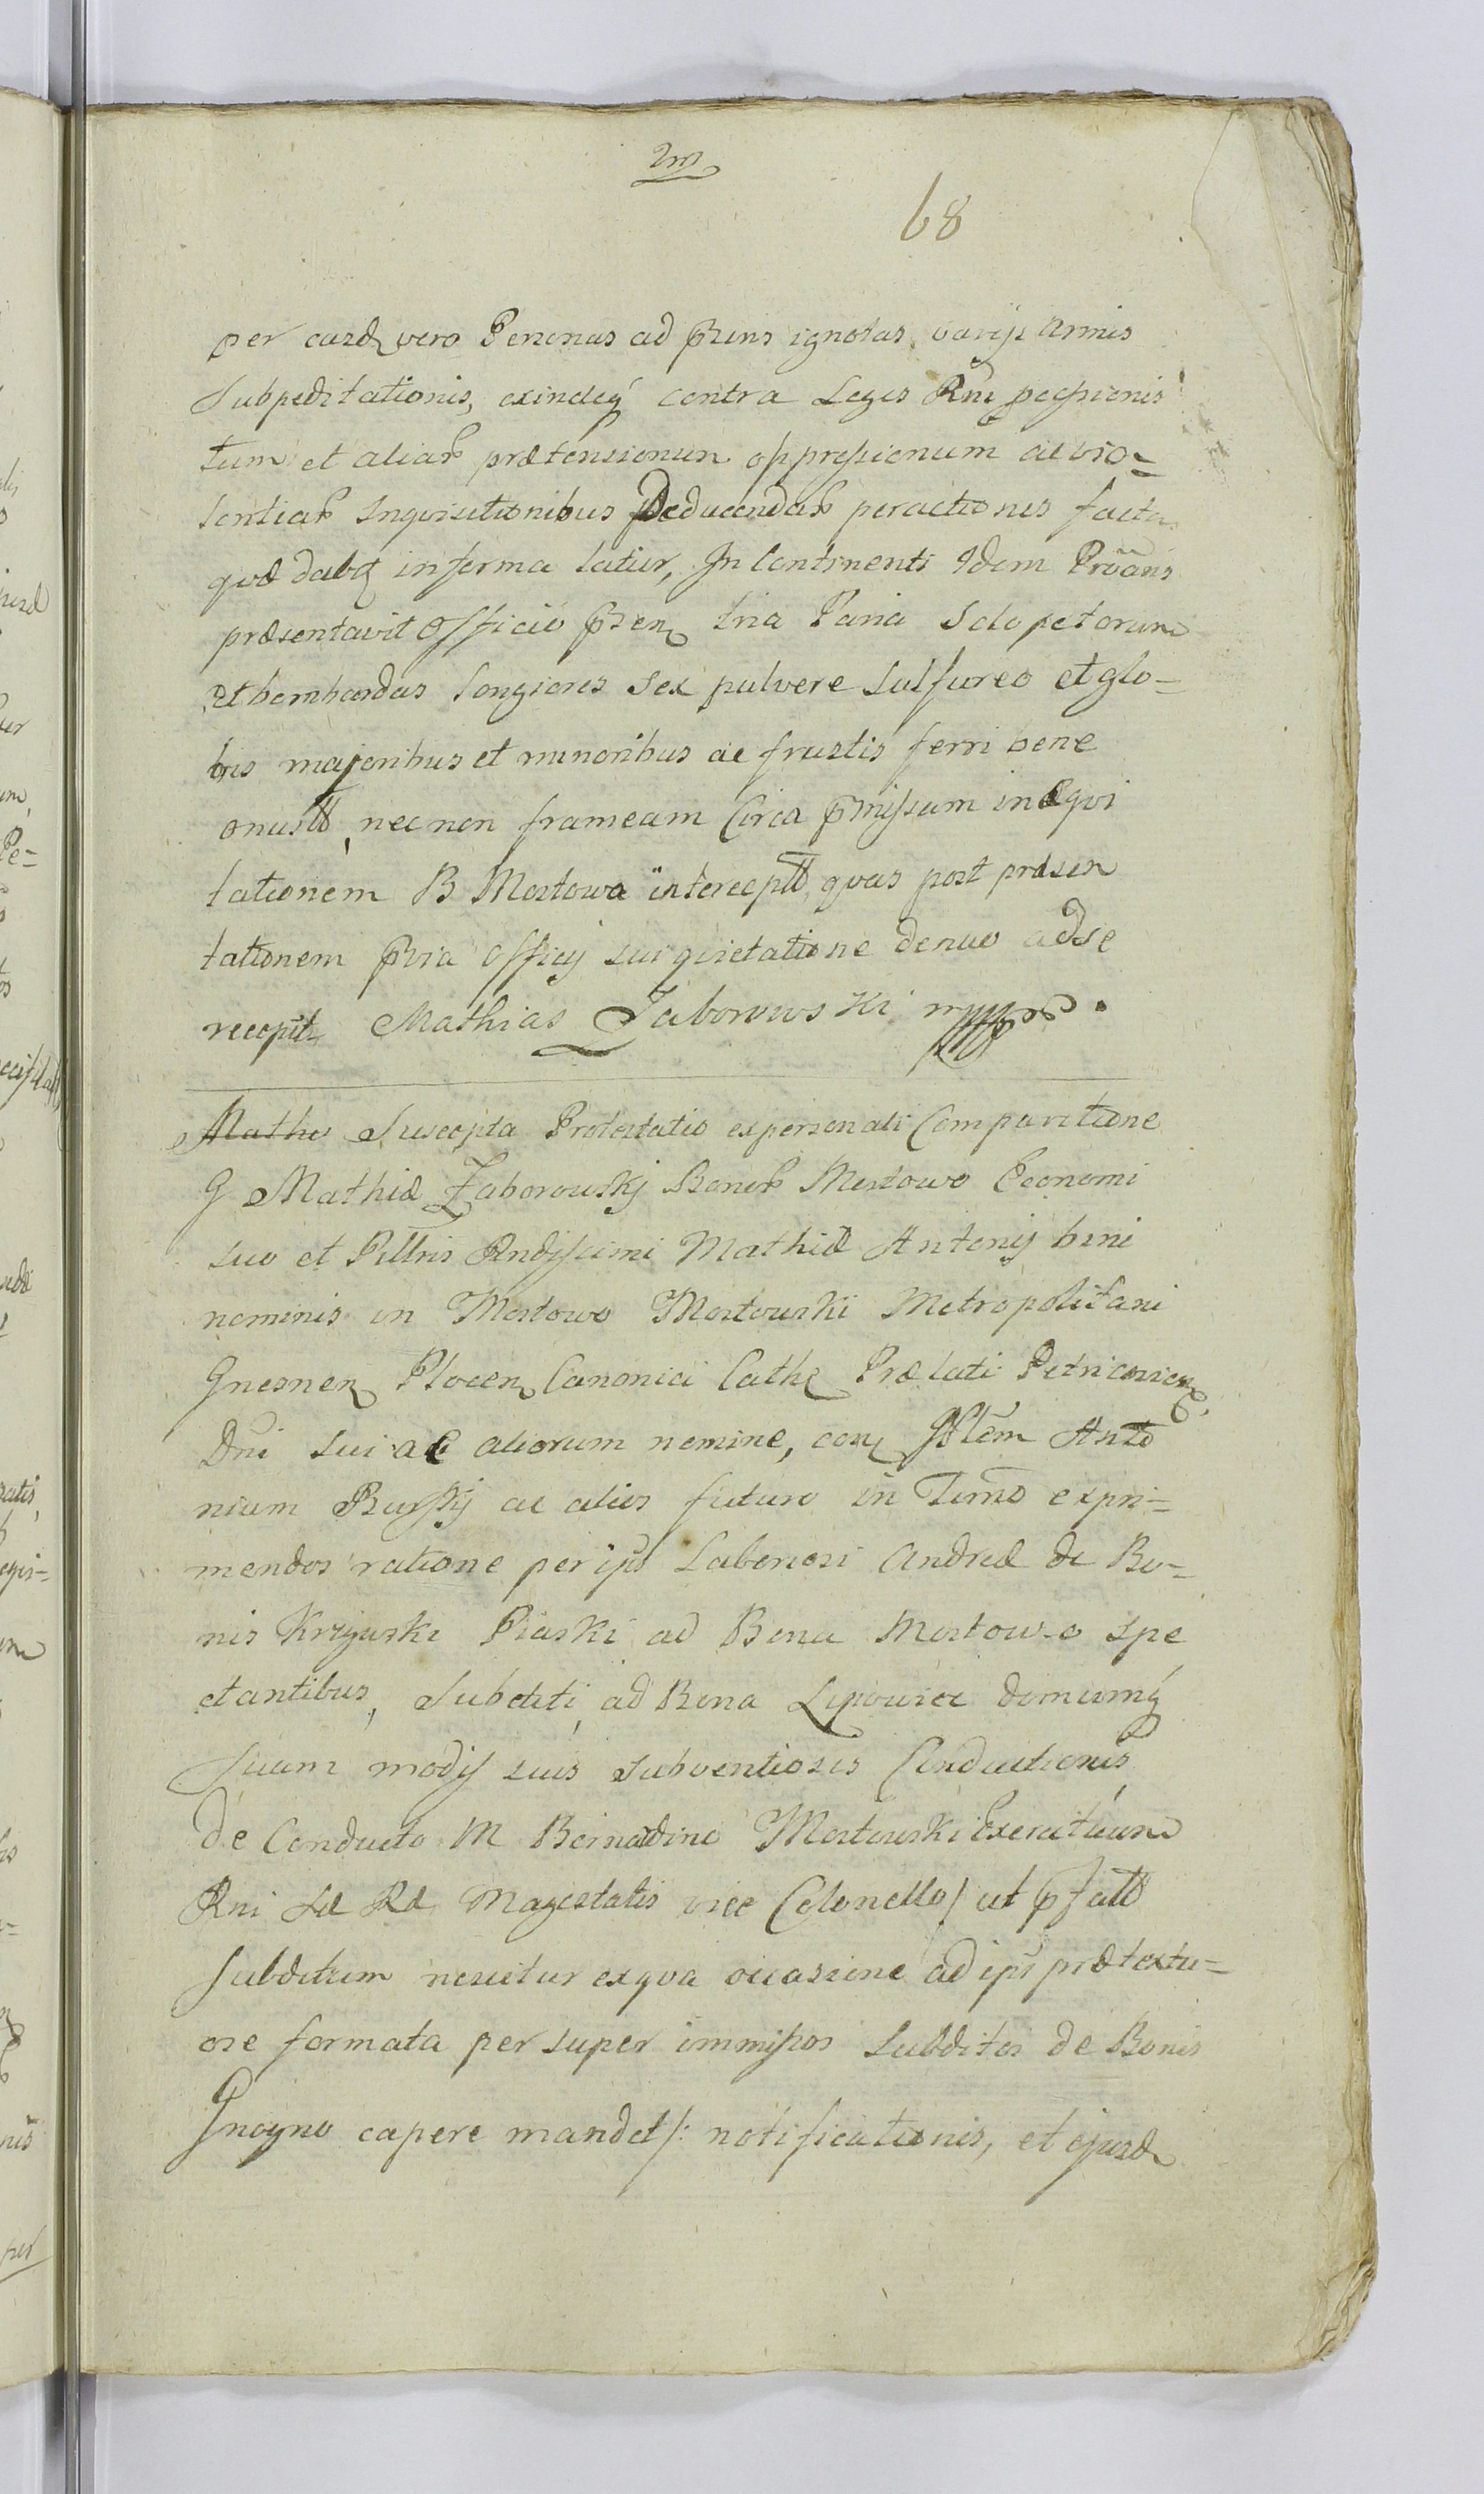 68
per easd vero Personas ad prsens ignotas varijs Armis
Subpeditationis, exindeq contra Leges Rni
tum et aliar prætensionum oppressionum ac vio=
lentiar Inquisitionibus Deducendar peractionis facta
quæ dabit in forma latius, In Continenti Idem
præsentavit Officio prsen tria Paria Sclopetorum
et bombardas longiores sex pulvere sulfureo et glo=
bis majoribus et minoribus ac frustis ferri bene
onustas, nec non frameam Circa pmissam inæqui
tationem B Mostowa interceptas, quas post præsen
tationem pria Officij sui quietatione denuo ad se
recepit Mathias Zaborowski mpp
Mathe Suscepta Protestatio ex personali Comparitione
G Mathiæ Zaborowskj Bonor Mostowo Economi
suo et Rndissimi Mathiæ Antonij bini
nominis in Mostowo Mostowski Metropolitani
Gnesnen Plocen Canonici Cath Prælati
Dni sui ac aliorum nomine, con Anto
nium ac alios futuro in Termo expri=
mendos ratione per ips Laboriosi Andreæ de Bo=
nis Krzywski Piaski ad Bona Mostowo spe
ctantibus, Subditi, ad Bona Lipowiec domumq
suam modis suis Subventiosis Conductionis
de Conducto M Bernardino Mostowski Exercituum
Rni Sæ Ræ Majestatis vice Colonello / ut pfatt
Subditum ex qva occasione ad ips prætextu=
ose formata per super immissos Subditos de Bonis
Gnoyno capere mandet /: notificationis, et ejusd